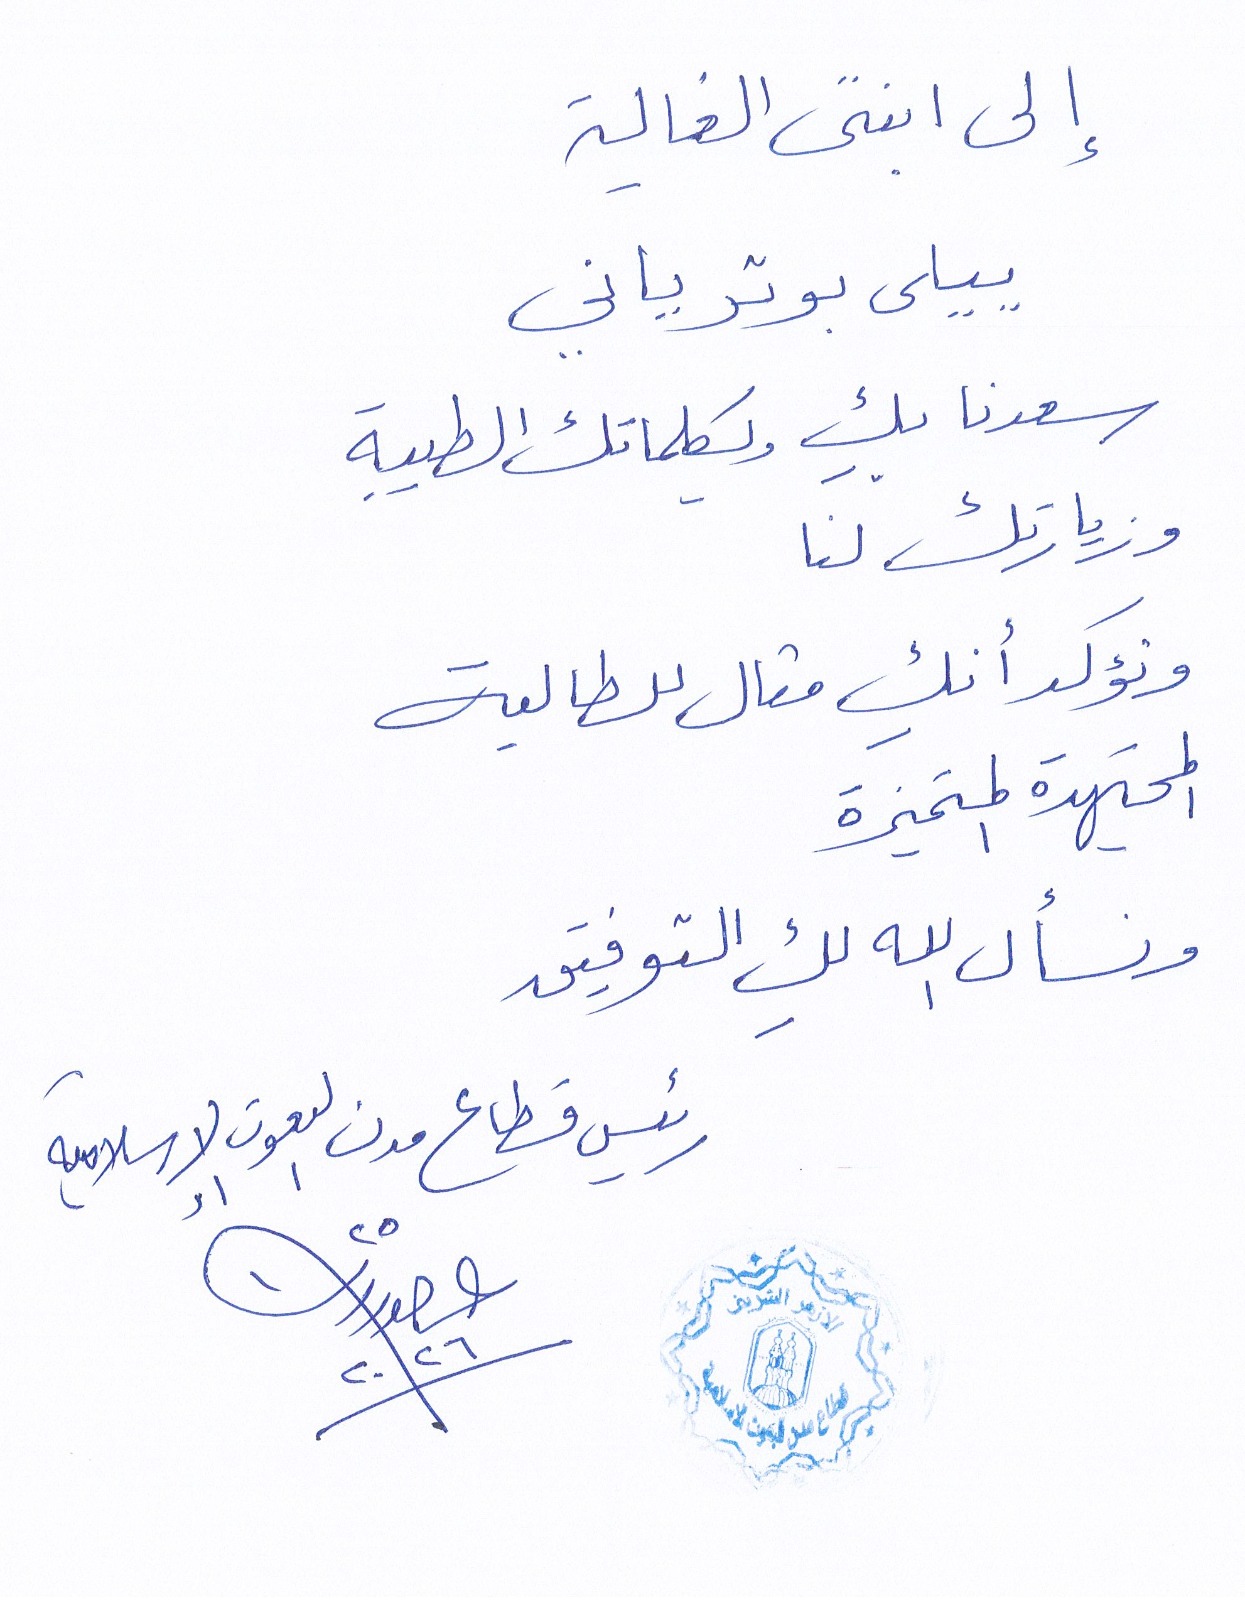 إلى ابنتى الغالية
ييلى بوترياني
سعدنا بكِ وبكلماتك الطيبة
وزيارتك لنا
ونؤكد أنكِ مثال للطالبة
المجتهدة المتميزة
ونسأل الله لكِ التوفيق
رئيس قطاع مدن البعوث الإسلامية
٢٥
٢٠٢٦
الأزهر الشريف
قطاع مدن البعوث الإسلامية